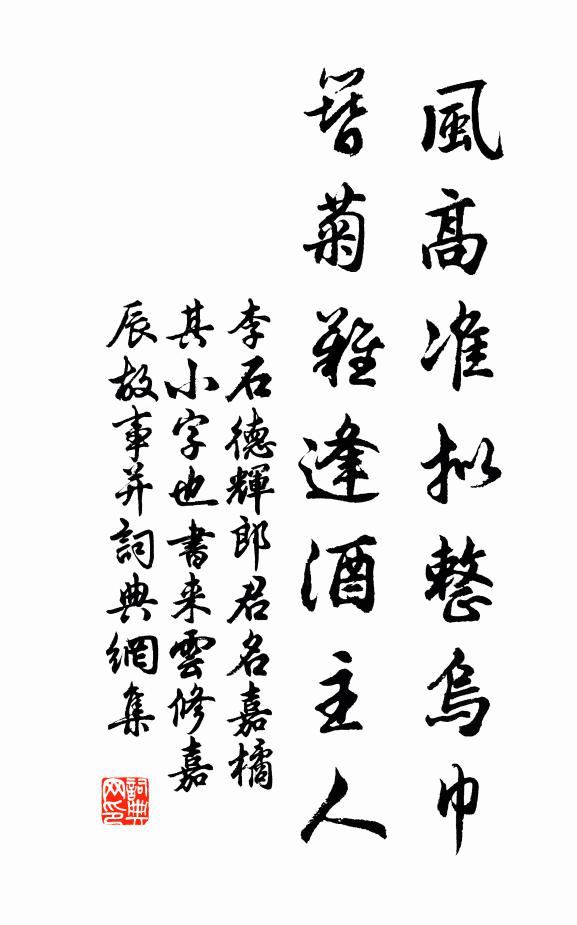 風高准拟整烏巾
簪菊難逢酒主人
李石德輝郎君名嘉橘
其小字也書来雲修嘉
辰故事并詞典網集
詞典網印